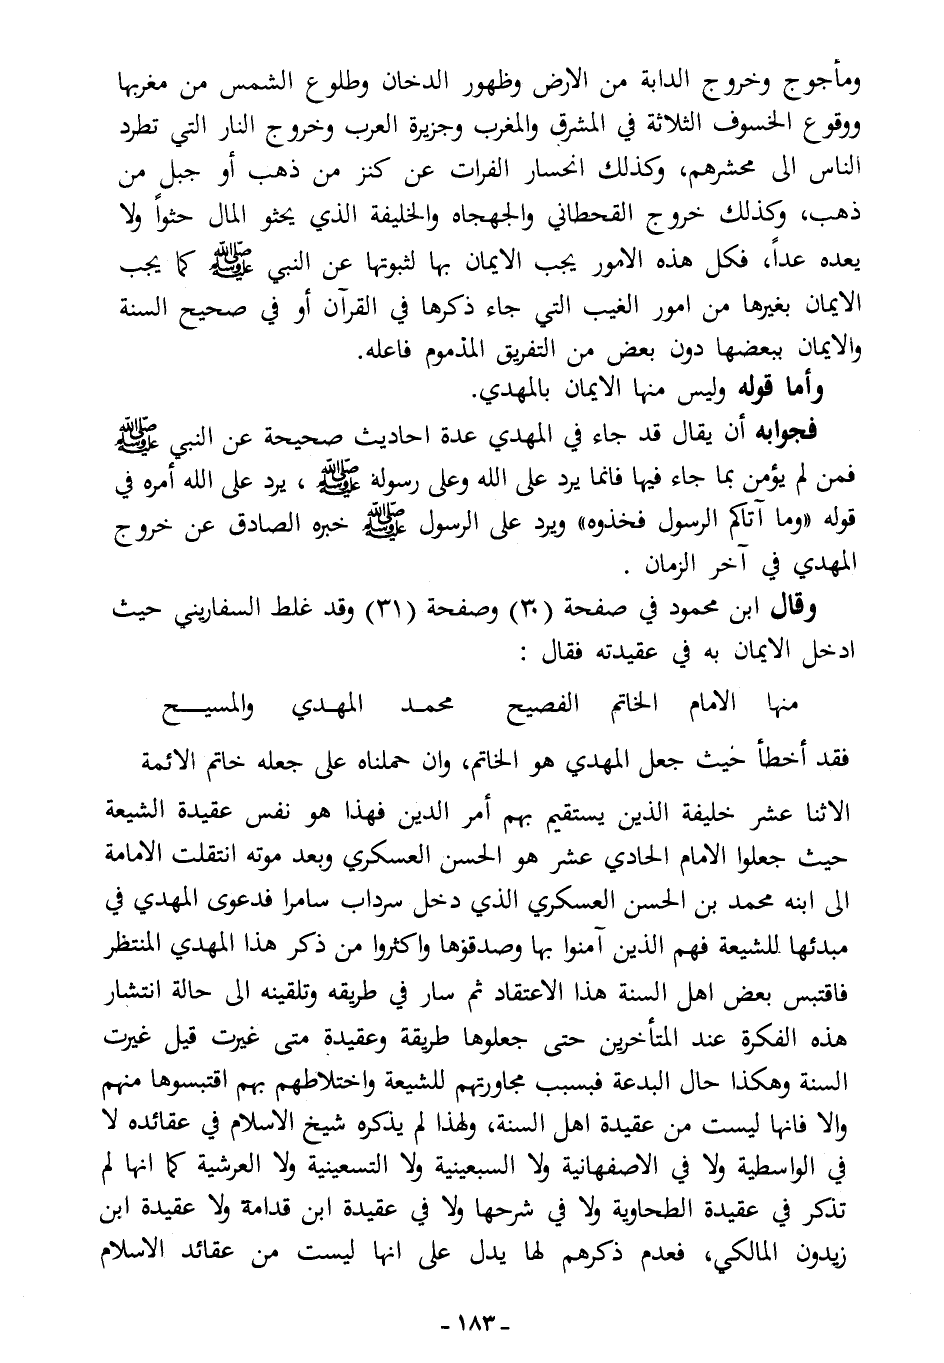 ومأجوج وخروج الدابة من الارض وظهور الدخان وطلوع الشمس من مغربها
ووقوع الخسوف الثلاثة في المشرق والمغرب وجزيرة العرب وخروج النار التي تطرد
الناس الى محشرهم، وكذلك انحسار الفرات عن كنز من ذهب أو جبل من
ذهب، وكذلك خروج القحطاني والجهجاه والخليفة الذي يحثو المال حثواً ولا
يعده عداً، فكل هذه الامور يجب الايمان بها لثبوتها عن النبي ﷺ كما يجب
الايمان بغيرها من امور الغيب التي جاء ذكرها في القرآن أو في صحيح السنة
والايمان ببعضها دون بعض من التفريق المذموم فاعله.
وأما قوله وليس منها الايمان بالمهدي.
فجوابه أن يقال قد جاء في المهدي عدة احاديث صحيحة عن النبي ﷺ
فمن لم يؤمن بما جاء فيها فانما يرد على الله وعلى رسوله ﷺ ، يرد على الله أمره في
قوله «وما آتاكم الرسول فخذوه» ويرد على الرسول ﷺ خبره الصادق عن خروج
المهدي في آخر الزمان .
وقال ابن محمود في صفحة (٣٠) وصفحة (٣١) وقد غلط السفاريني حيث
ادخل الايمان به في عقيدته فقال :
منها الامام الخاتم الفصيح محمد المهدي والمسيح
فقد أخطأ حيث جعل المهدي هو الخاتم، وان حملناه على جعله خاتم الائمة
الاثنا عشر خليفة الذين يستقيم بهم أمر الدين فهذا هو نفس عقيدة الشيعة
حيث جعلوا الامام الحادي عشر هو الحسن العسكري وبعد موته انتقلت الامامة
الى ابنه محمد بن الحسن العسكري الذي دخل سرداب سامرا فدعوى المهدي في
مبدئها للشيعة فهم الذين آمنوا بها وصدقوها واكثروا من ذكر هذا المهدي المنتظر
فاقتبس بعض اهل السنة هذا الاعتقاد ثم سار في طريقه وتلقينه الى حالة انتشار
هذه الفكرة عند المتأخرين حتى جعلوها طريقة وعقيدة متى غيرت قيل غيرت
السنة وهكذا حال البدعة فبسبب مجاورتهم للشيعة واختلاطهم بهم اقتبسوها منهم
والا فانها ليست من عقيدة اهل السنة، ولهذا لم يذكره شيخ الاسلام في عقائده لا
في الواسطية ولا في الاصفهانية ولا السبعينية ولا التسعينية ولا العرشية كما انها لم
تذكر في عقيدة الطحاوية ولا في شرحها ولا في عقيدة ابن قدامة ولا عقيدة ابن
زيدون المالكي، فعدم ذكرهم لها يدل على انها ليست من عقائد الاسلام
- ١٨٣ -